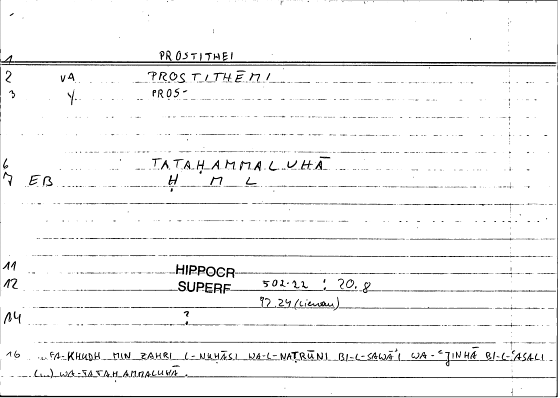 1 PROSTITHEI
2 VA PROSTITHĒMI
3 Y. PROS-
6 TATAḤAMMALUHĀ
7 EB Ḥ M L
11 HIPPOCR
12 SUPERF 502.22 : 20.8
92.24 (Lienau)
14 ?
16 FA-KHUDH MIN ZAHRI L-NUḤĀSI WA-L-NAṬRŪNI BI-L-SAWĀ'I WA-ʿJINHĀ BI-L-ʿASALI
(...) WA-TATAḤAMMALUVĀ.